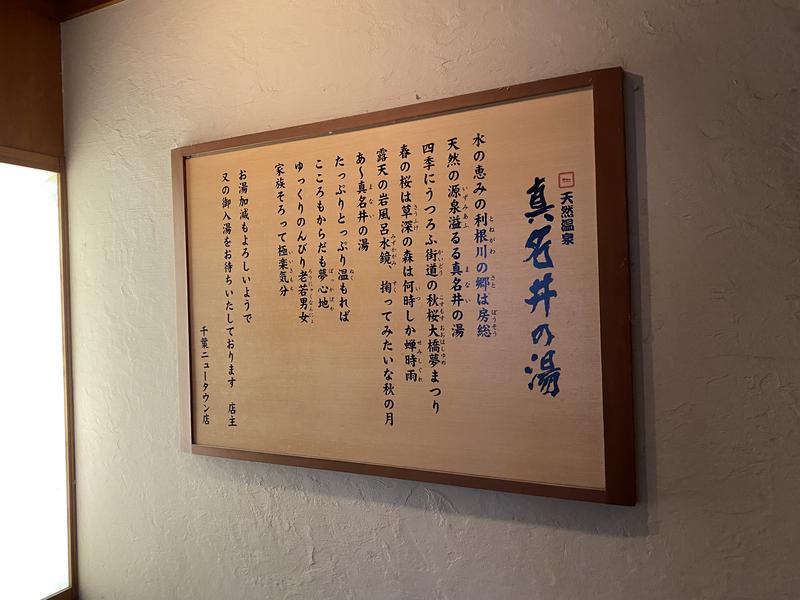 天然温泉
真名井の湯
水の恵みの利根川の郷は房総
天然の源泉溢るる真名井の湯
四季にうつろふ街道の秋桜大橋夢まつり
春の桜は草深の森は何時しか蝉時雨
露天の岩風呂水鏡、掬ってみたいな秋の月
あ〜真名井の湯
たっぷりとっぷり温もれば
こころもからだも夢心地
ゆっくりのんびり老若男女
家族そろって極楽気分
お湯加減もよろしいようで
又の御入湯をお待ちいたしております　店主
千葉ニュータウン店